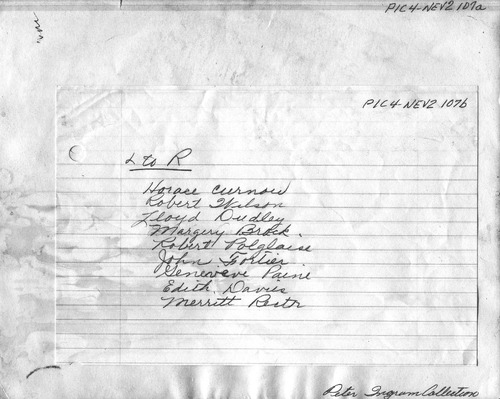 PIC4-NEV2 107a
PIC4-NEV2 107b
L to R
Horace Curnow
Robert Wilson
Lloyd Dudley
Margery Brock.
Robert Polglaise
John Fortier
Genevieve Paine
Edith Davies
Merritt
Peter Ingram Collection